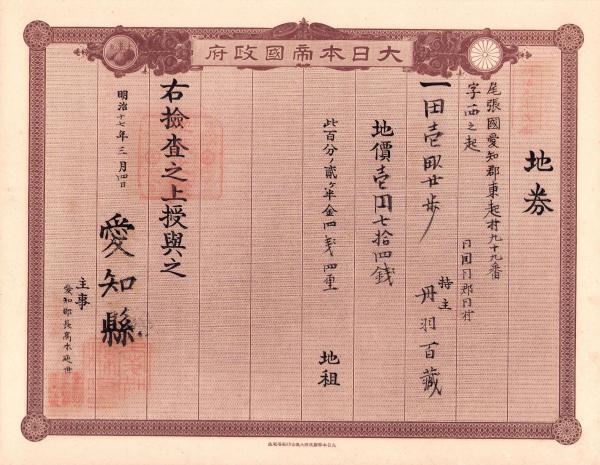 大日本帝國政府
地券
尾張國愛知郡東起村九十九番
字西之起
一田壹畝廿歩
同国同郡同村
持主 丹羽百蔵
地價壹円七拾四錢
此百分ノ貳ヶ半金四銭四厘
地租
右撿査之上授與之
明治十七年三月四日
愛知縣
主事
愛知郡長